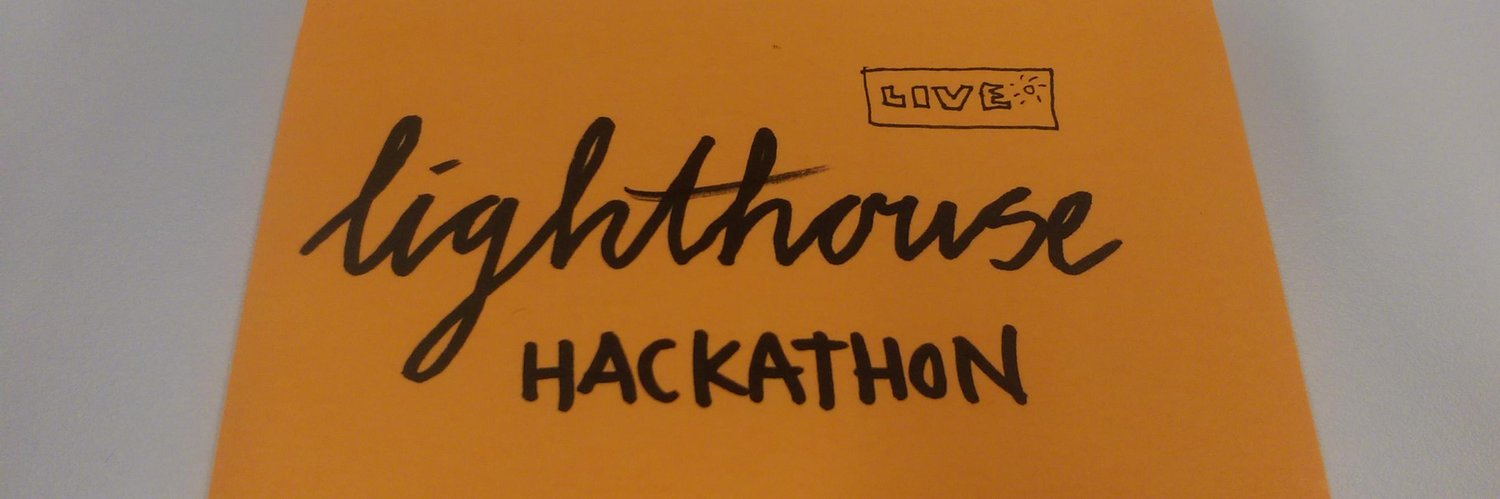 LIVE
lighthouse
HACKATHON